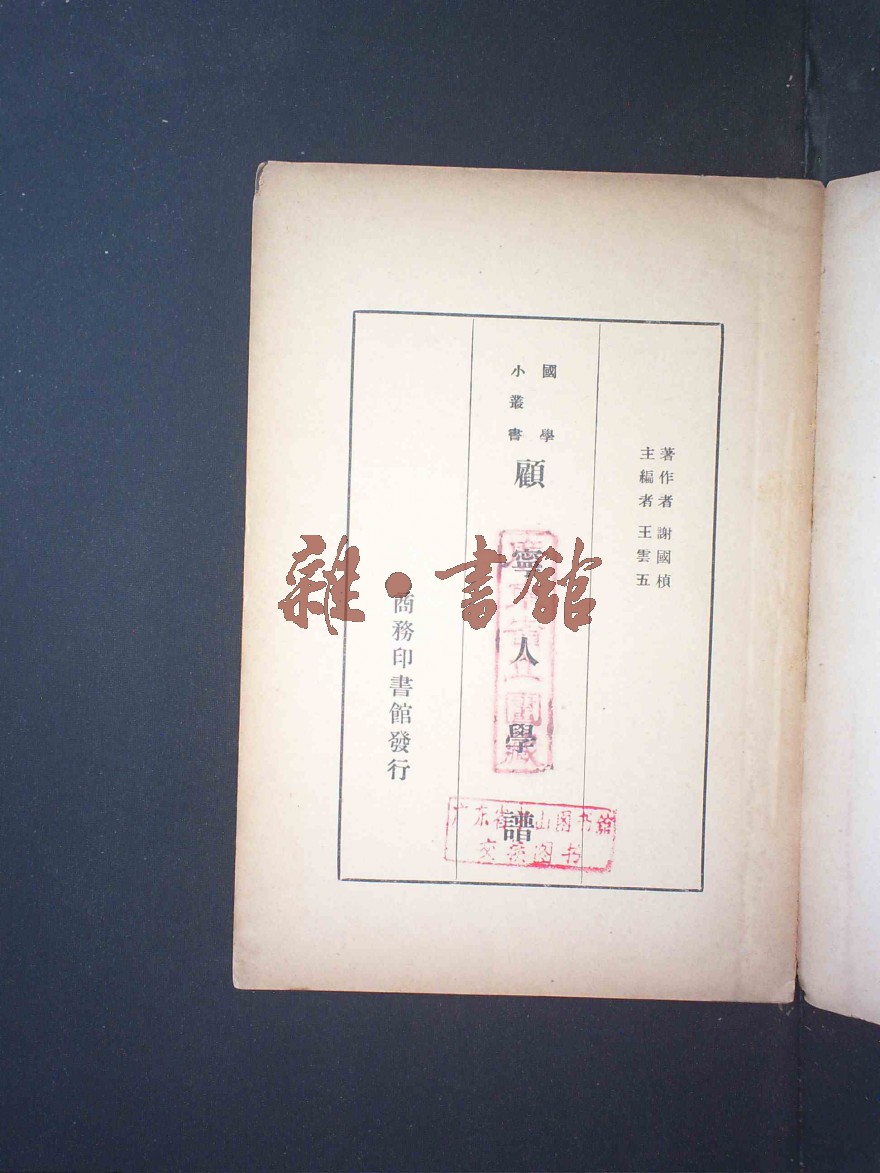 著作者 謝國楨
主編者 王雲五
國學
小叢書
顧寧人學譜
商務印書館發行
雜·書館
广东省中山图书馆
交换图书